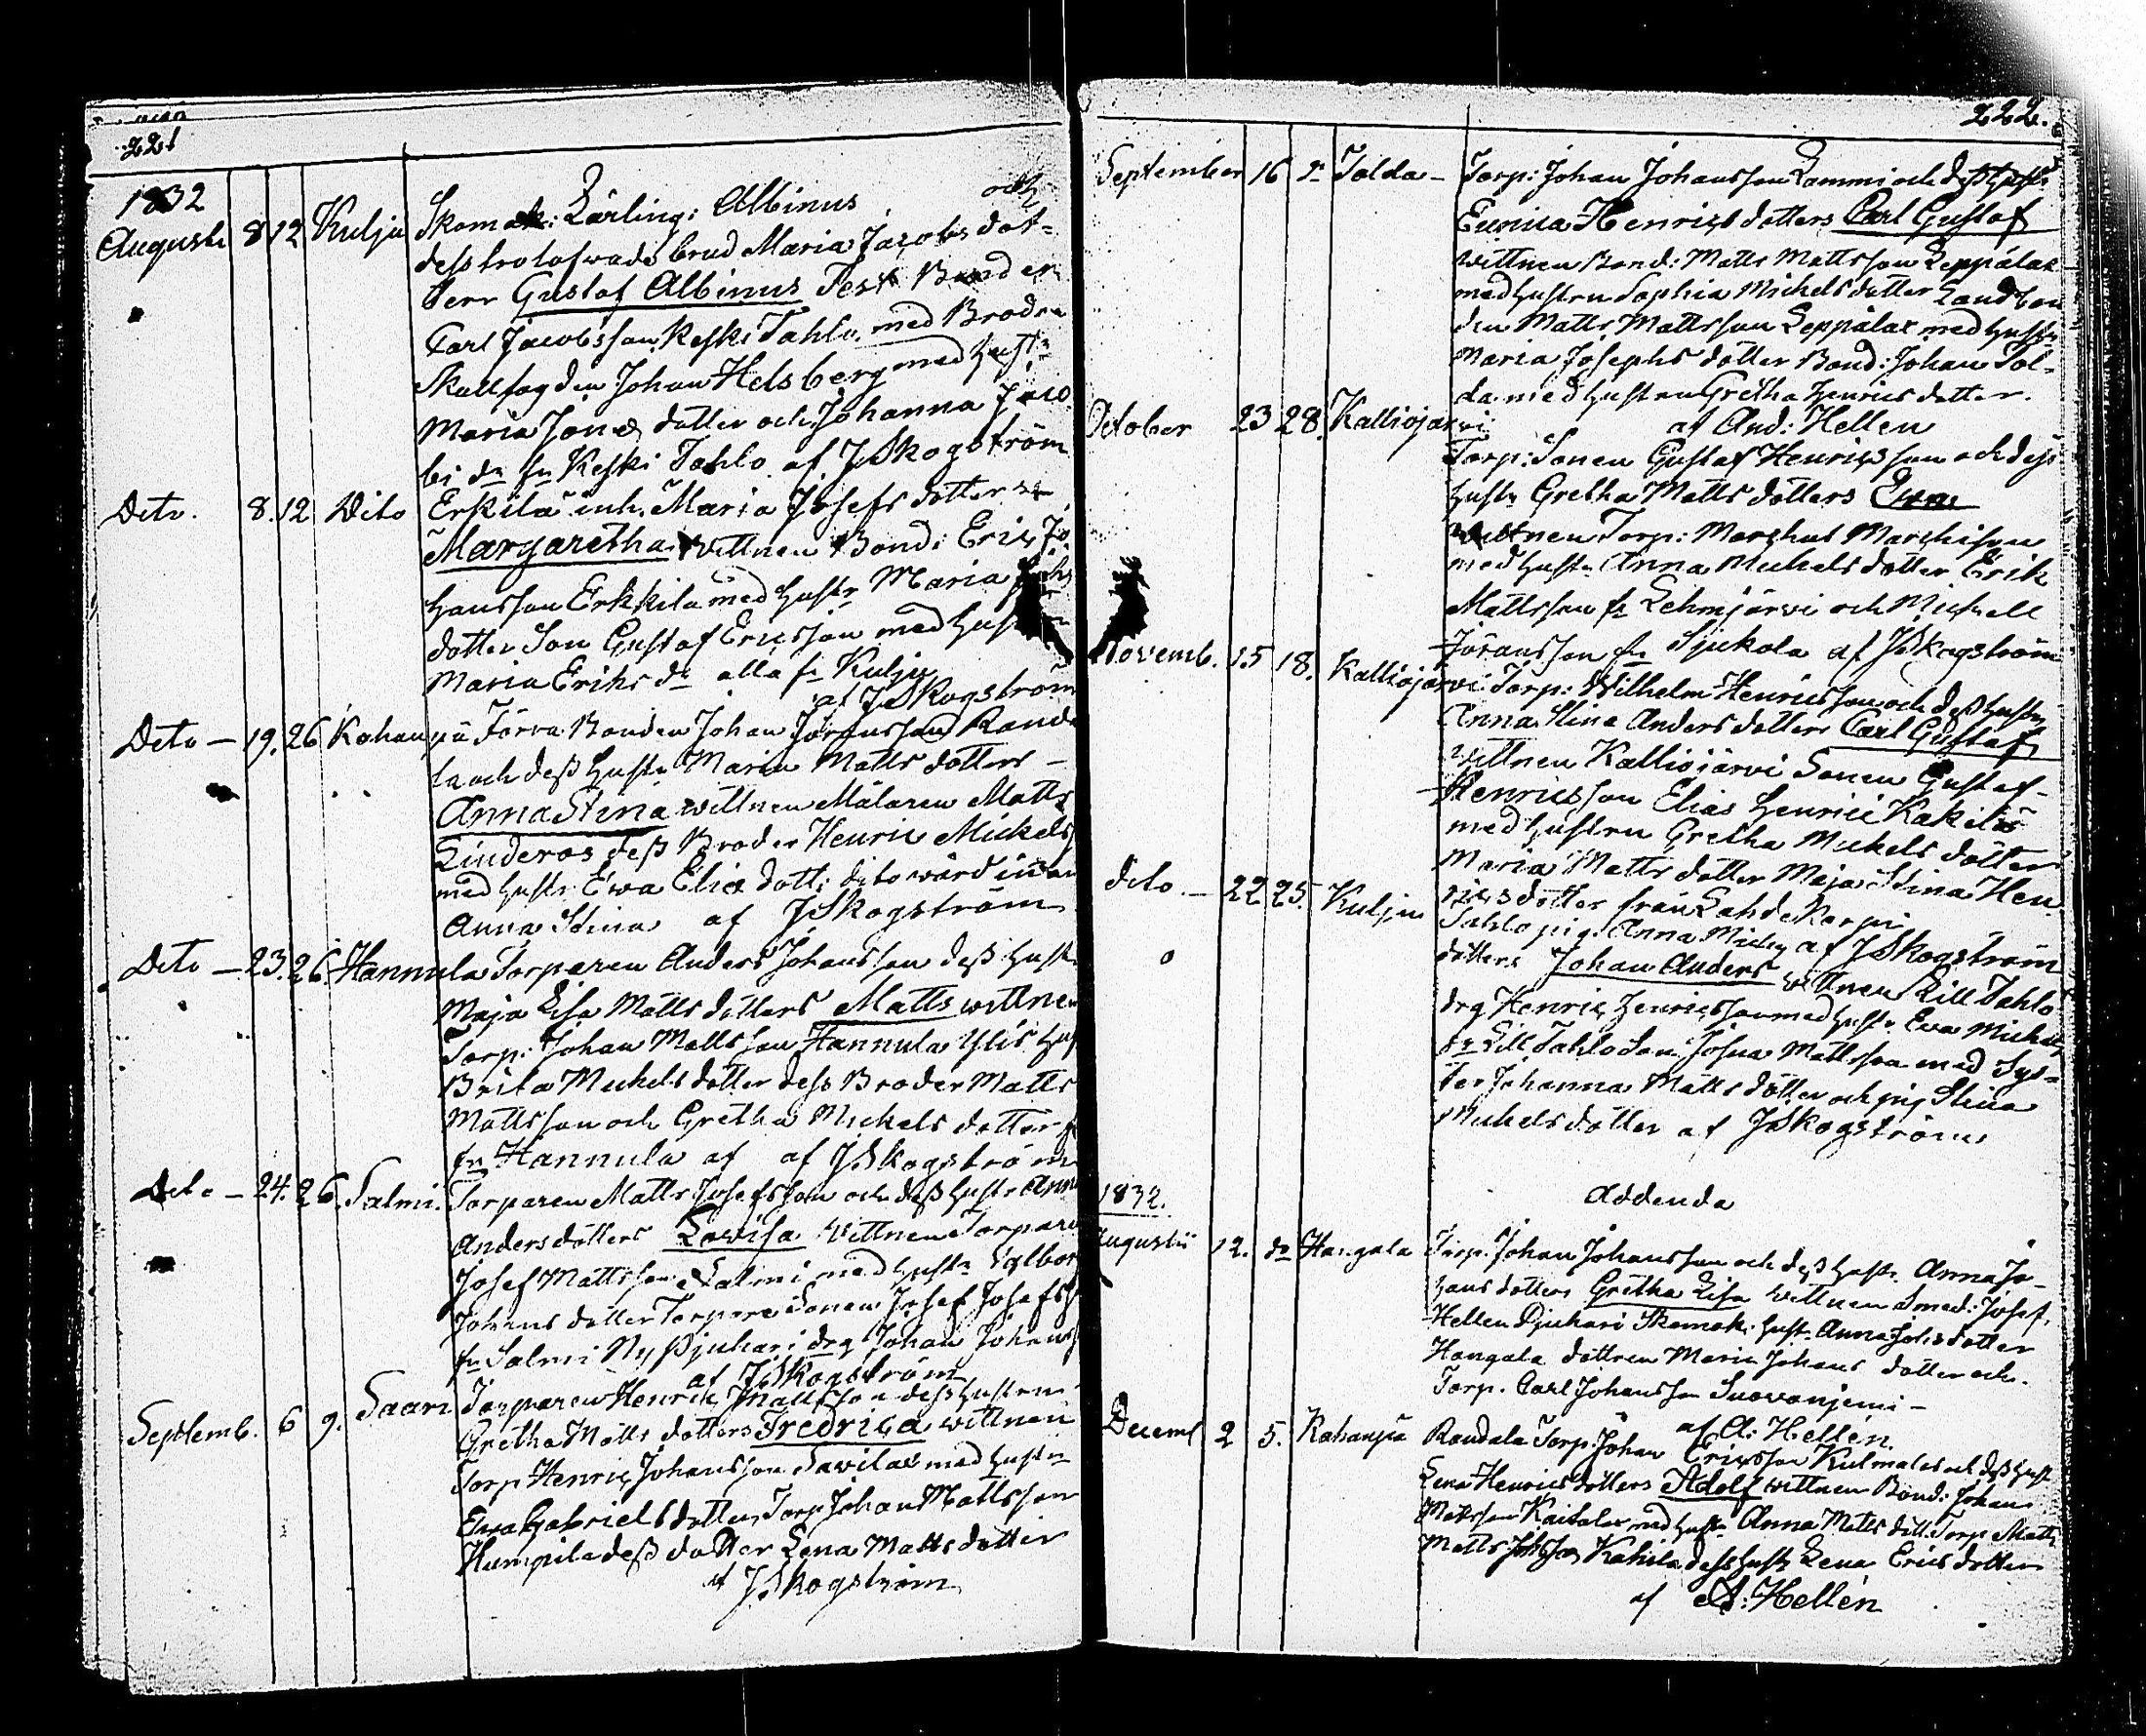 221
1832
Augusti 8 12 Kulju Skomak: Lärling: Albinus och
dess trolofwade brud Maria Jacobs dot=
terr Gustaf Albinus Test Bonden
Carl Jacobsson Keski Tahlo med Brodren
Skallfogden Johan Helsberg med hustr
Maria Jonæ dotter och Johanna Jaco
bi dr fr Keski Tahlo af JSkogström
Dito. 8. 12 Dito Erkilä inh. Maria Josefs dotters
Margaretha wittnen Bond: Eric Jo
hansson Erkkila med hustr Maria
dotter Son Gustaf Ericsson med hust
Maria Eriks dr alla fr Kulju
af JSkogström
Dito — 19. 26 Kohanpä Förra Bonden Johan Johansson Randa
la och dess hustr Maria Matts dotters —
Anna Stina wittnen Målaren Matts
Linderos dess Broder Henric Mickels
med hustr Ewa Elia dott: dito wärdinnan
Anna Stina af JSkogström
Dito — 23. 26. Hannula Torparen Anders Johansson dess hustr
Maja Lisa Matts dotters Matts wittnen
Torp: Johan Mattsson Hannula Ylis hus
Brita Mickels dotter dess Broder Matts
Mattsson och Gretha Mickels dotter
fr Hannula af af JSkogström
Dito — 24. 26. Salmi. Torparen Matts Josefsson och dess hustr Anna
Andersdotters Lowisa Wittnen Torparen
Josef Mattsson Salmi med hustr Walbor
Johans dotter Torpare Sonen Josef Josefss
fr Salmi Ny Pjuhari drg Johan Johanss
af JSkogström
Septemb. 6 9. Saari Torparen Henrik Mattsson dess hustru
Gretha Matts dotters Fredrica wittnen
Torp Henric Johansson Sawilax med hustru
Ewa Gabrielsdotter Torp Johan Mattsson
Humpila dess dotter Lena Matts dotter
af JSkogström
222.
September 16 dr Tolda — Torp: Johan Johansson Lammi och dess hustr
Eunica Henrics dotters Carl Gustaf
wittnen Bond: Matts Mattsson Leppälax
med hustru Sophia Michels dotter Landbon
den Matts Mattsson Leppälax med hustr
Maria Josephs dotter Bond: Johan Tol=
da med hustru Gretha Henrics dotter.
af And: Hellen
October 23 28. Kalliojärvi Torp: Sonen Gustaf Henricsson och dess
hustr Gretha Matts dotters Ewa
wittnen Torp: Marchus Marchisson
med hustr Anna Michels dotter Erik
Mattsson fr Lehmjärvi och Michell
Joransson fr Sjukola af JSkogström
Novemb. 15 18. Kalliojärvi Torp: Wilhelm Henricsson och dess hustru
Anna Stina Anders dotters Carl Gustaf
Wittnen Kalliojärvi Sonen Gustaf
Henricsson Elias Henrici Kakila
med hustru Gretha Mickels dotter
Maria Matts dotter Maja Stina Hen
rics dotter från Lahdekorpi
af JSkogström
dito — 22 25. Kulju Tahlo pig. Anna Mickels
dotters Johan Anders wittnen Lill Tahlo
drg Henric Henricsson med hustr Ewa Michels
fr Lill Tahlo Son Josua Mattsson med Sys=
ter Johanna Matts dotter och pig Stina
Mickelsdotter af JSkogström
Addenda
1832.
Augusti 12. dr Hangala Torp. Johan Johansson och dess hustr Anna Jo-
hans dotters Gretha Lisa wittnen Smed: Josef.
Hellen Pjuhari Skomak: hustr. Anna Johs dotter
Hangala dottren Maria Johans dotter och
Torp. Carl Johansson Suovanjemi —
af A: Hellén.
Decemb 2 5. Kohanpä Randala Torp: Johan Ericsson Kulmala och dess hustr
Lena Henrics dotters Adolf wittnen Bond: Johan
Mattsson Kaitalax med hustr Anna Matts dott Torp Matts
Matts Johsson Kakila dess hustr Lena Erics dotter
af A: Hellén